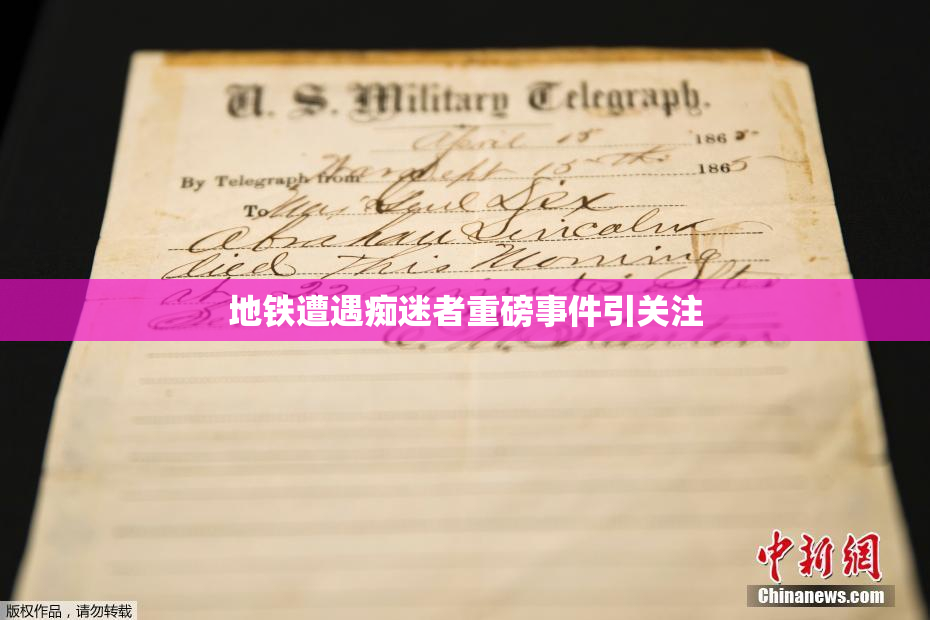 U. S. Military Telegraph.
April 15 1865
By Telegraph from War Dept 15th 1865
To Maj Genl Dix
Abraham Lincoln
died This Morning
at 22 minutes after
地铁遭遇痴迷者重磅事件引关注
中新网
Chinanews.com
版权作品,请勿转载